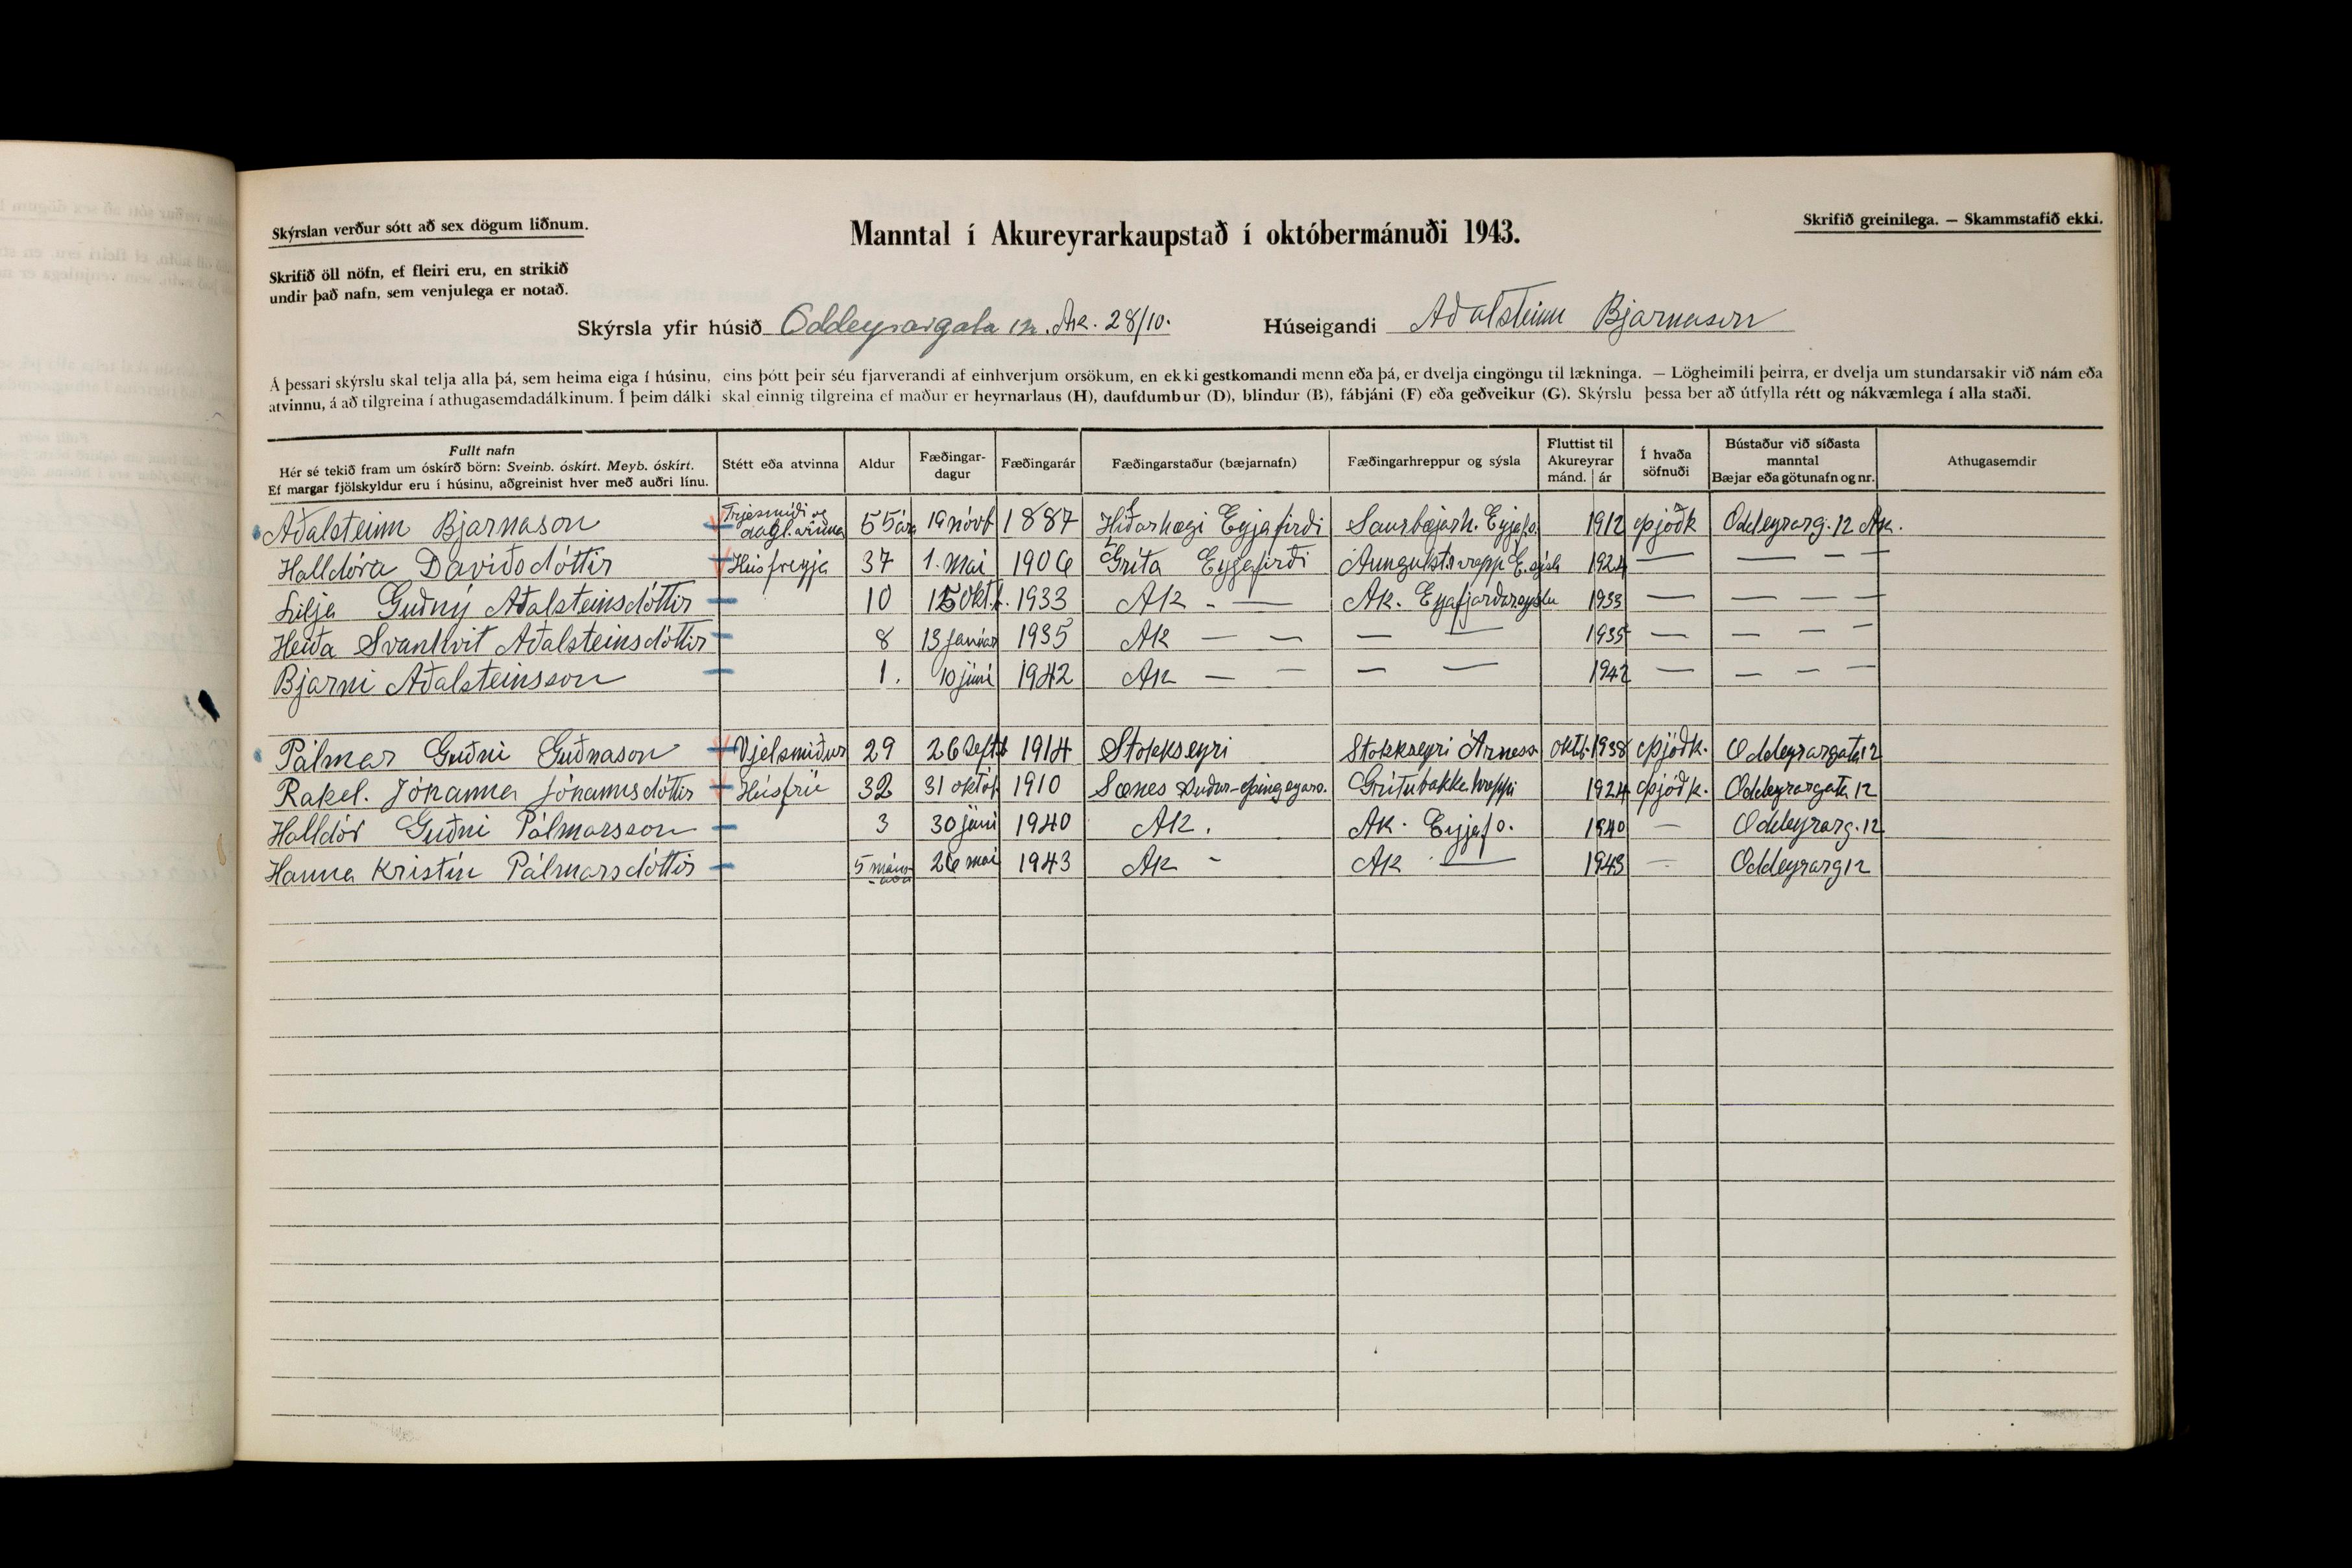 Skýrslan verður sótt að sex dögum liðnum.
Manntal í Akureyrarkaupstað í októbermánuði 1943.
Skrifið greinilega. — Skammstafið ekki.
Skrifið öll nöfn, ef fleiri eru, en strikið
undir það nafn, sem venjulega er notað.
Skýrsla yfir húsið Oddeyrargata 12. Ak. 28/10. Húseigandi Aðalsteinn Bjarnason
Á þessari skýrslu skal telja alla þá, sem heima eiga í húsinu, eins þótt þeir séu fjarverandi af einhverjum orsökum, en ekki gestkomandi menn eða þá, er dvelja eingöngu til lækninga. — Lögheimili þeirra, er dvelja um stundarsakir við nám eða
atvinnu, á að tilgreina í athugasemdadálkinum. Í þeim dálki skal einnig tilgreina ef maður er heyrnarlaus (H), daufdumbur (D), blindur (B), fábjáni (F) eða geðveikur (G). Skýrslu þessa ber að útfylla rétt og nákvæmlega í alla staði.
Fullt nafn
Hér sé tekið fram um óskírð börn: Sveinb. óskírt. Meyb. óskírt.
Ef margar fjölskyldur eru í húsinu, aðgreinist hver með auðri línu.
Stétt eða atvinna
Aldur
Fæðingar-
dagur
Fæðingarár
Fæðingarstaður (bæjarnafn)
Fæðingarhreppur og sýsla
Fluttist til
Akureyrar
mánd. ár
Í hvaða
söfnuði
Bústaður við síðasta
manntal
Bæjar eða götunafn og nr.
Athugasemdir
Aðalsteinn Bjarnason Trjesmíði og dagl.vinna 55 ára 19 nóvb 1887 Eyjafirði Saurbæjarh. Eyjafs. 1912 þjóðk Oddeyrarg. 12 Ak.
Halldóra Davíðsdóttir Húsfreyja 37 1. Maí 1906 Grita Eyjafirði E.sýsla 1924 — — – –
Lilja Guðný Aðalsteinsdóttir 10 15 okt. 1933 Ak - — Ak. Eyjafjarðarsýslu 1933 — — — –
Heiða Svanhvít Aðalsteinsdóttir 8 13 janúar 1935 Ak — – — — 1935 — — – –
Bjarni Aðalsteinsson 1. 10 júní 1942 Ak — – – — 1942 — – – –
Pálmar Guðni Guðnason Vjelsmiður 29 26 Septb 1914 Stokkseyri Stokkseyri Árness. októb. 1938 þjóðk. Oddeyrargata 12
Rakel. Jóhanna Jóhannsdóttir Húsfrú 32 31 októb. 1910 Sænes Suður-þingeyars. Grítubakka hreppi 1924 þjóðk. Oddeyrargata 12
Halldór Guðni Pálmarsson 3 30 júní 1940 Ak. Ak. Eyjafs. 1940 — Oddeyrarg. 12
Hanna Kristín Pálmarsdóttir 5 mán- 26 maí 1943 Ak - Ak. — 1943 — Oddeyrarg 12